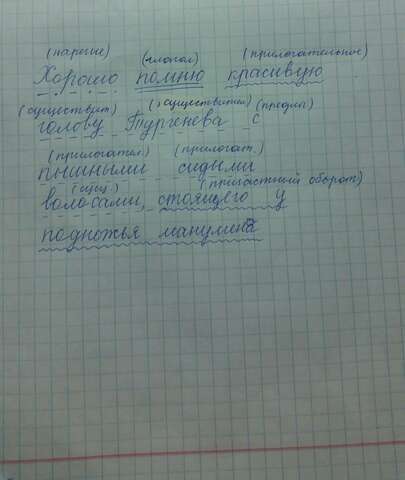 (наречие) (глагол) (прилагательное)
Хорошо помню красивую
(существит) (существител) (предлог)
голову Тургенева с
(прилагател) (прилагат.)
пышными сидыми
(сущ.) (причастный оборот)
волосами, стоящего у
подножья